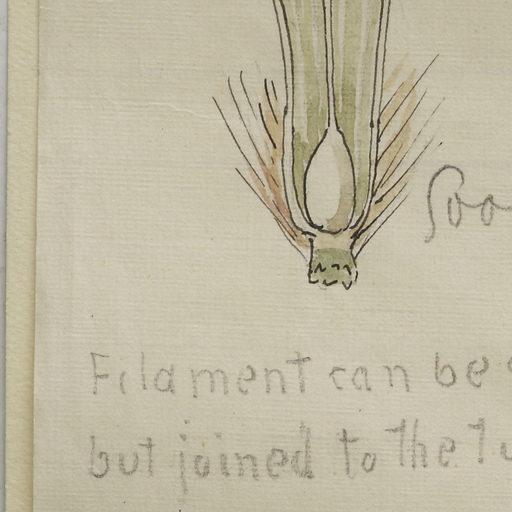 Filament can be
but joined to the